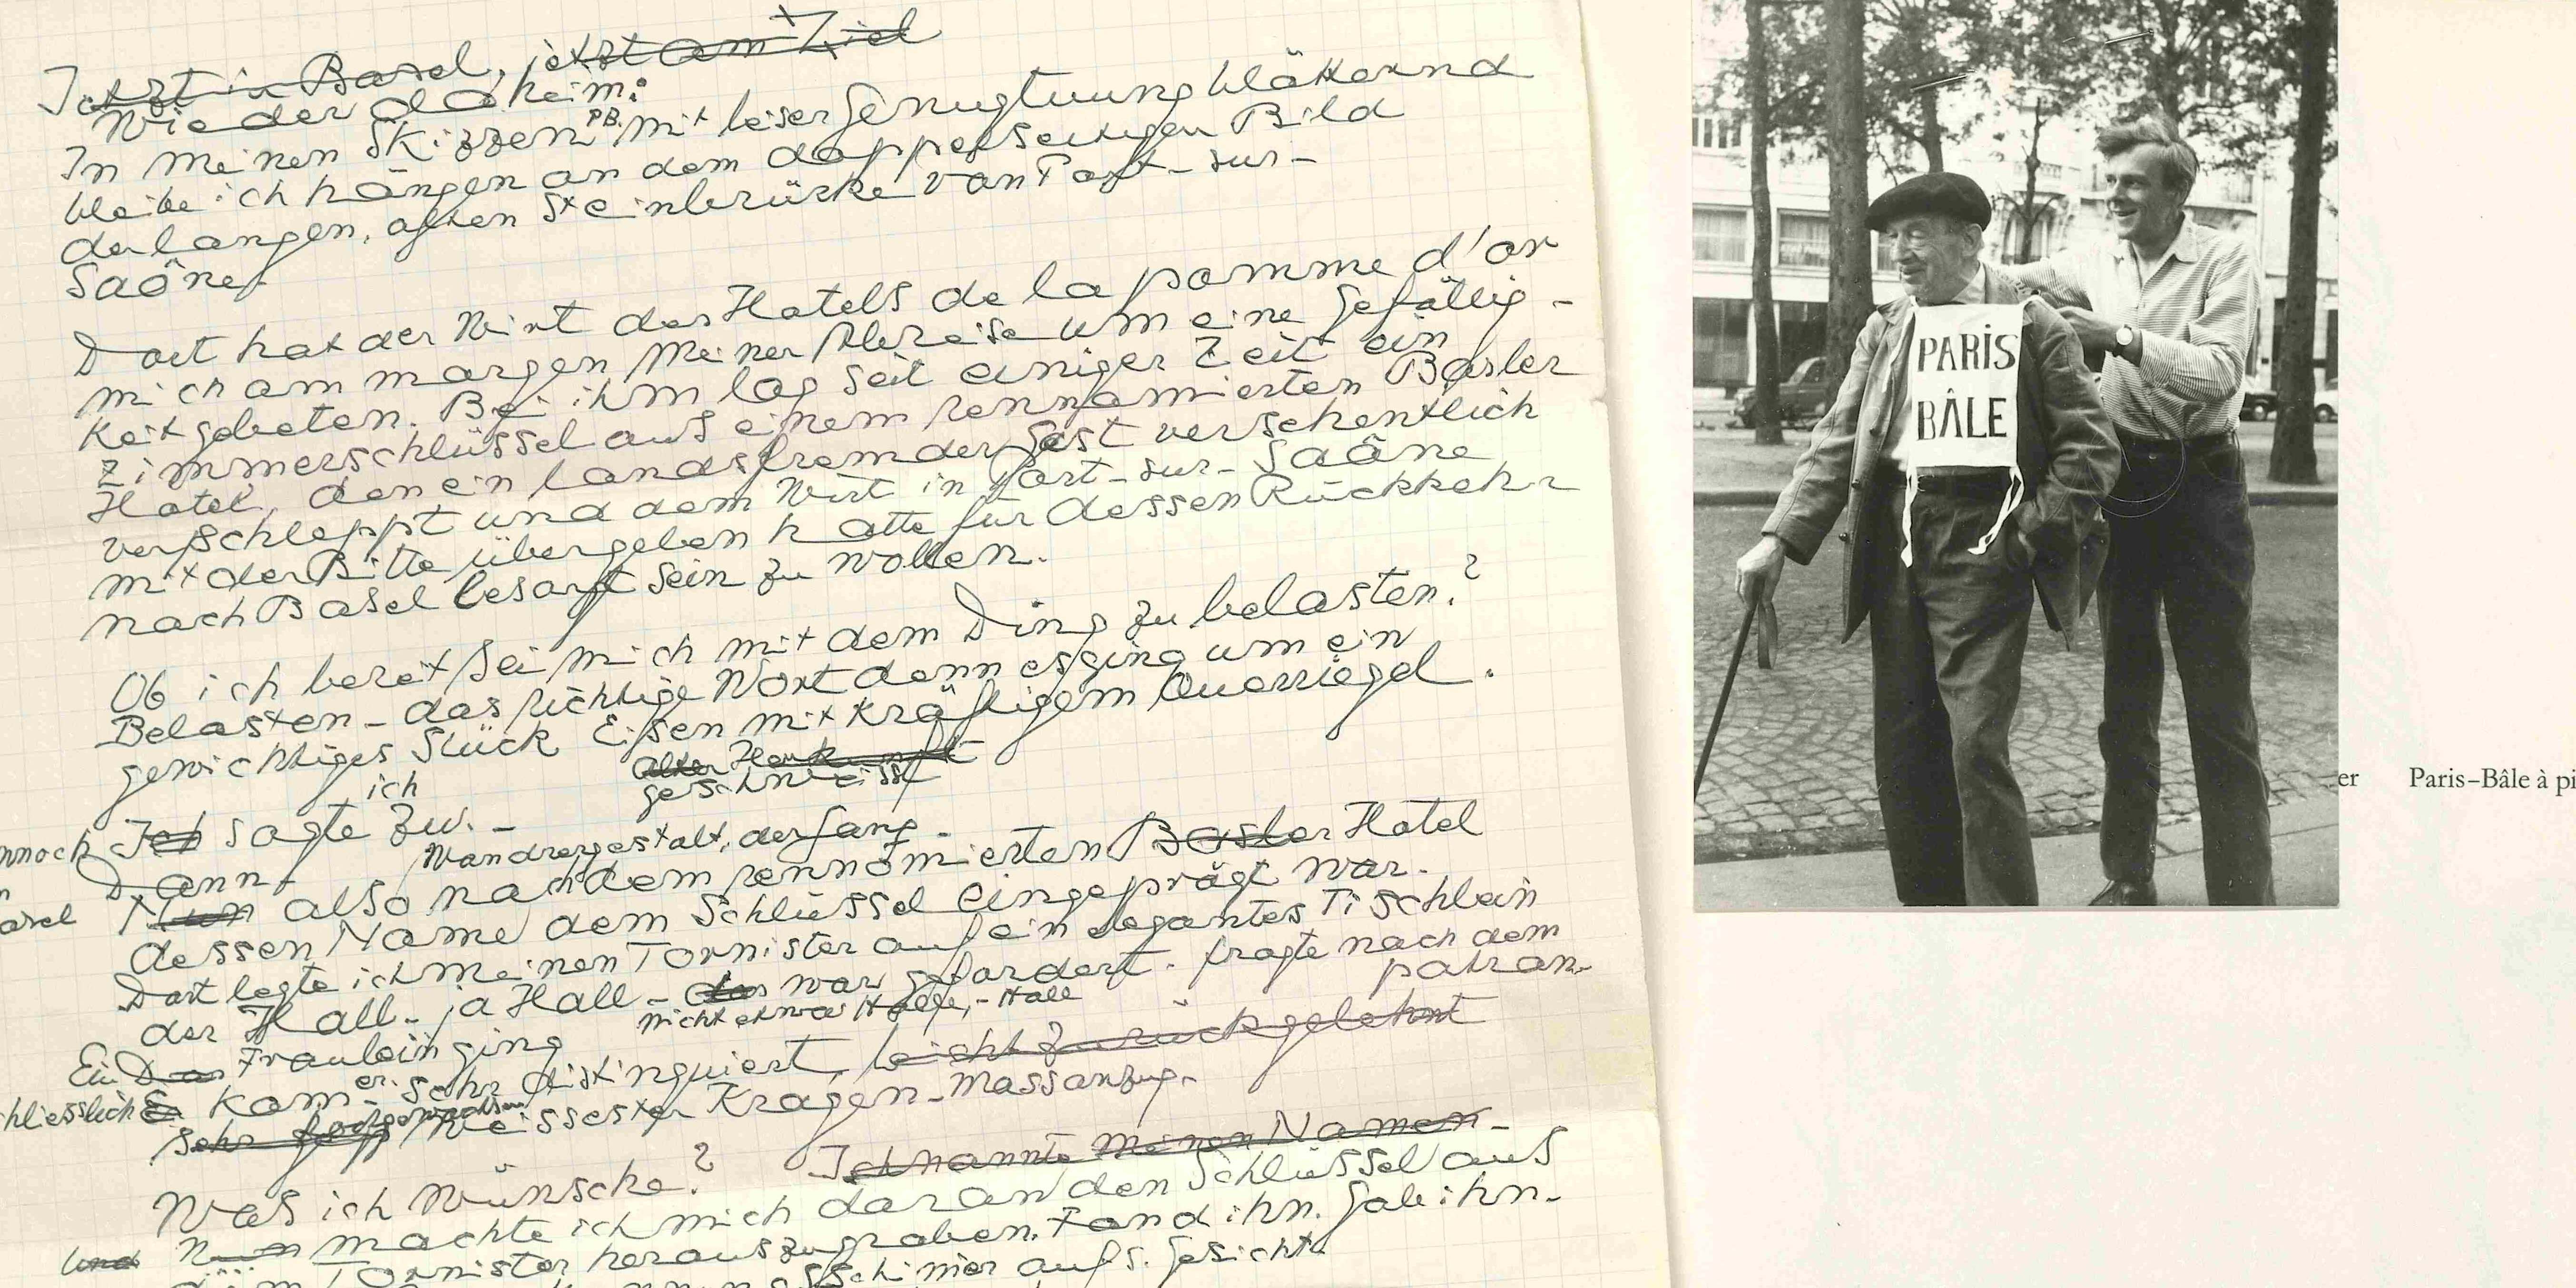 Jetzt in Basel, jetzt am Ziel
Wieder daheim:
In meinen Skizzen PB. mit leiser Genugtuung blätternd
bleibe ich hängen an dem doppelseitigen Bild
der langen, alten Steinbrücke von Port-sur-
Saône.
Dort hat der Wirt des Hotels de la pomme d'or
mich am morgen meiner Abreise um eine Gefällig-
keit gebeten. Bei ihm lag seit einiger Zeit ein
Zimmerschlüssel aus einem rennomierten Basler
Hotel, den ein landsfremder Gast versehentlich
verschleppt und dem Wirt in Port-sur-Saône
mit der Bitte übergeben hatte für dessen Rückkehr
nach Basel besorgt sein zu wollen.
Ob ich bereit sei mich mit dem Ding zu belasten?
Belasten - das richtige Wort denn es ging um ein
gewichtiges Stück Eisen mit kräftigem Querriegel.
alter Herkunft
geschweisst
ich
nnoch Ich sagte zu. -
Dann - Wandrergestalt, der Gang -
asel Nun also nach dem rennomierten Basler Hotel
dessen Name dem Schlüssel eingeprägt war.
Dort legte ich meinen Tornister auf ein elegantes Tischlein
der Hall - ja Hall - das war gefordert. fragte nach dem
patron.
nicht etwa Halle, - Hall
Ein Das Fraulein ging
chliesslich Er kam - er. sehr distinguiert, leicht zurückgelehnt
sehr weissester Kragen - Massanzug.
Was ich wünsche? Ich nannte meinen Namen -
und Nun machte ich mich daran den Schlüssel aus
dem Tornister herauszugraben. Fand ihn. Gab ihn.
aufs. Gesicht
PARIS
BÂLE
er Paris–Bâle à pi